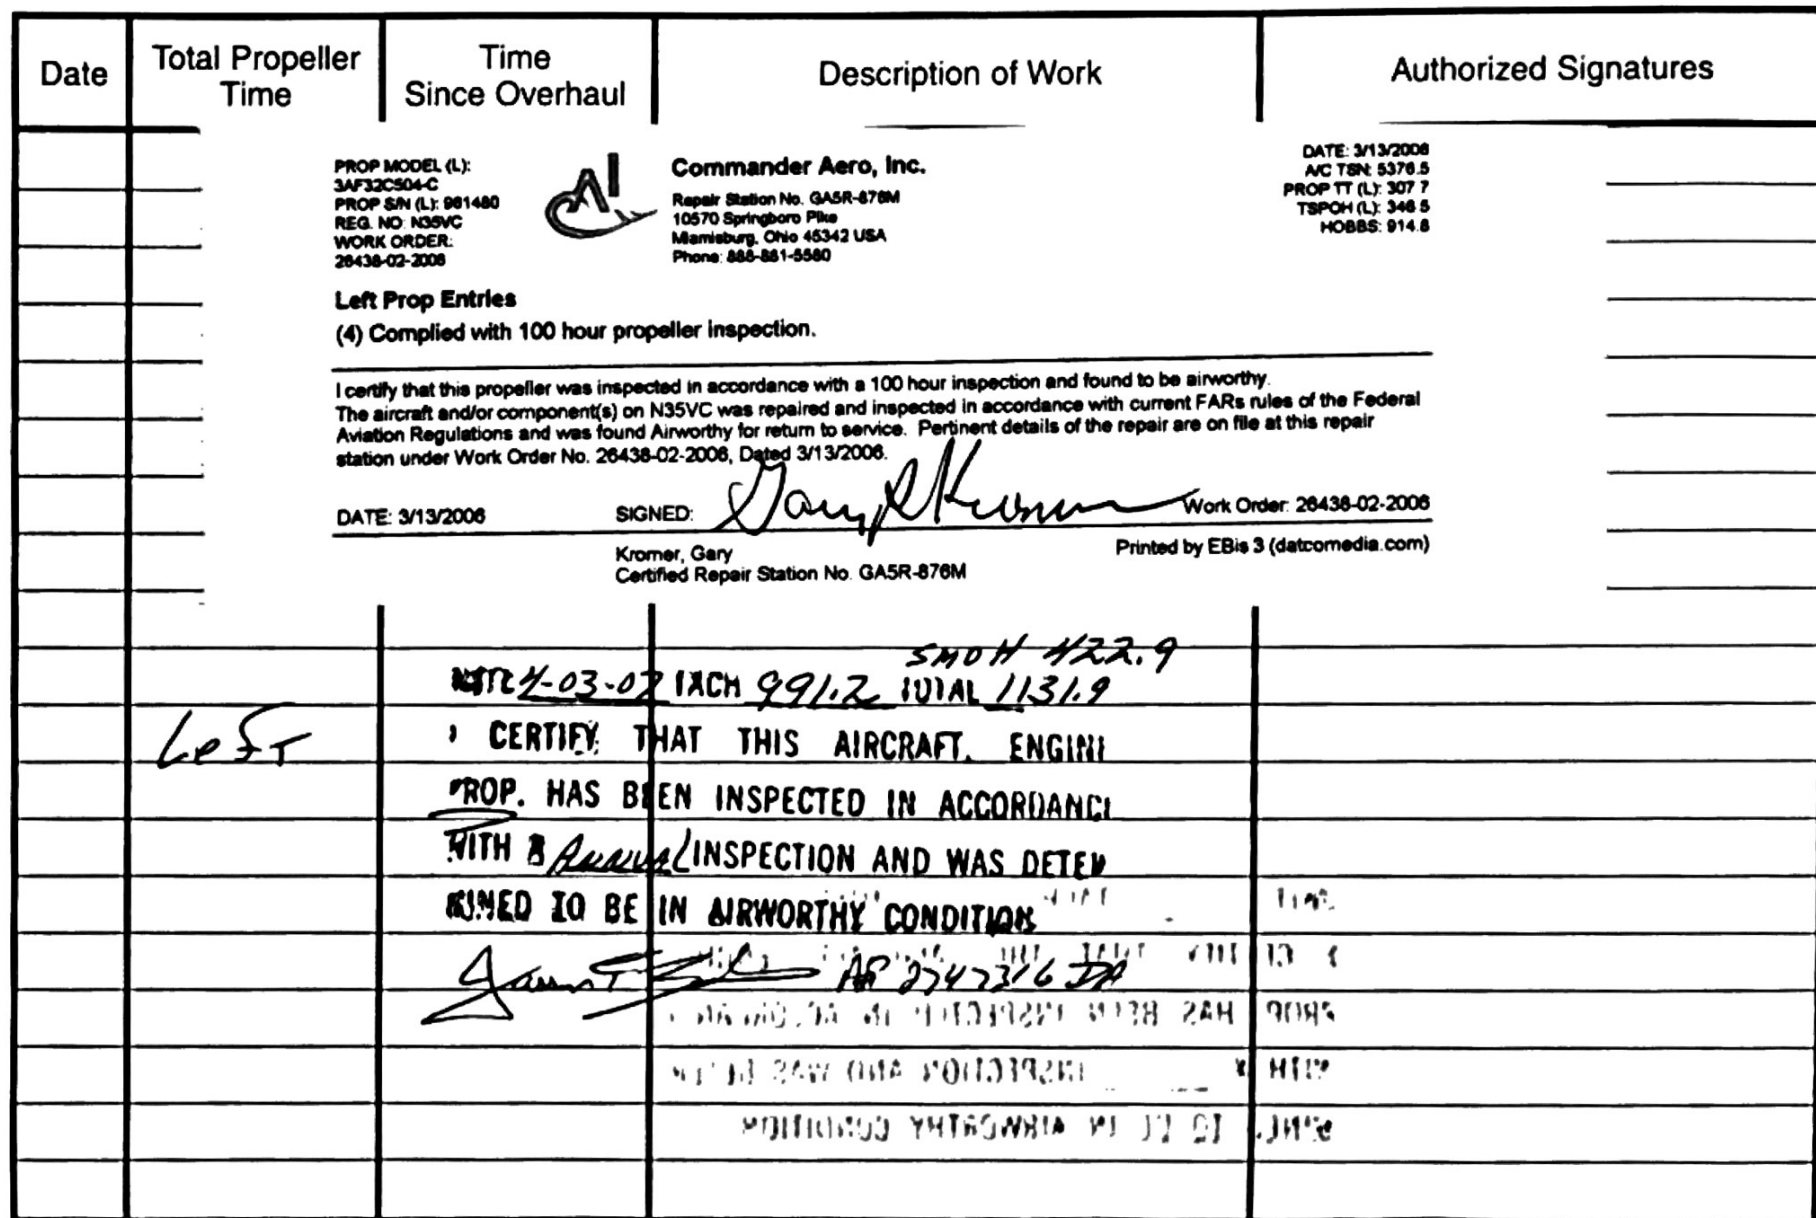 Date Total Propeller Time Time Since Overhaul Description of Work Authorized Signatures
PROP MODEL (L):
3AF32C504-C
PROP S/N (L): 981480
REG. NO: N35VC
WORK ORDER:
26438-02-2006
Commander Aero, Inc.
Repair Station No. GA5R-876M
10570 Springboro Pike
Miamisburg, Ohio 45342 USA
Phone: 888-881-5580
DATE: 3/13/2006
A/C TSN: 5376.5
PROP TT (L): 307.7
TSPOH (L): 346.5
HOBBS: 914.8
Left Prop Entries
(4) Complied with 100 hour propeller inspection.
I certify that this propeller was inspected in accordance with a 100 hour inspection and found to be airworthy.
The aircraft and/or component(s) on N35VC was repaired and inspected in accordance with current FARs rules of the Federal
Aviation Regulations and was found Airworthy for return to service. Pertinent details of the repair are on file at this repair
station under Work Order No. 26438-02-2006, Dated 3/13/2006.
DATE: 3/13/2006 SIGNED: Gary R Kromer Work Order: 26438-02-2006
Kromer, Gary
Certified Repair Station No. GA5R-876M
Printed by EBis 3 (datcomedia.com)
SMOH 422.9
DATE 4-03-07 TACH 991.2 TOTAL 1131.9
Left
I CERTIFY THAT THIS AIRCRAFT, ENGINE
PROP. HAS BEEN INSPECTED IN ACCORDANCE
WITH A Annual INSPECTION AND WAS DETER
MINED TO BE IN AIRWORTHY CONDITION
AP 2747316 IA